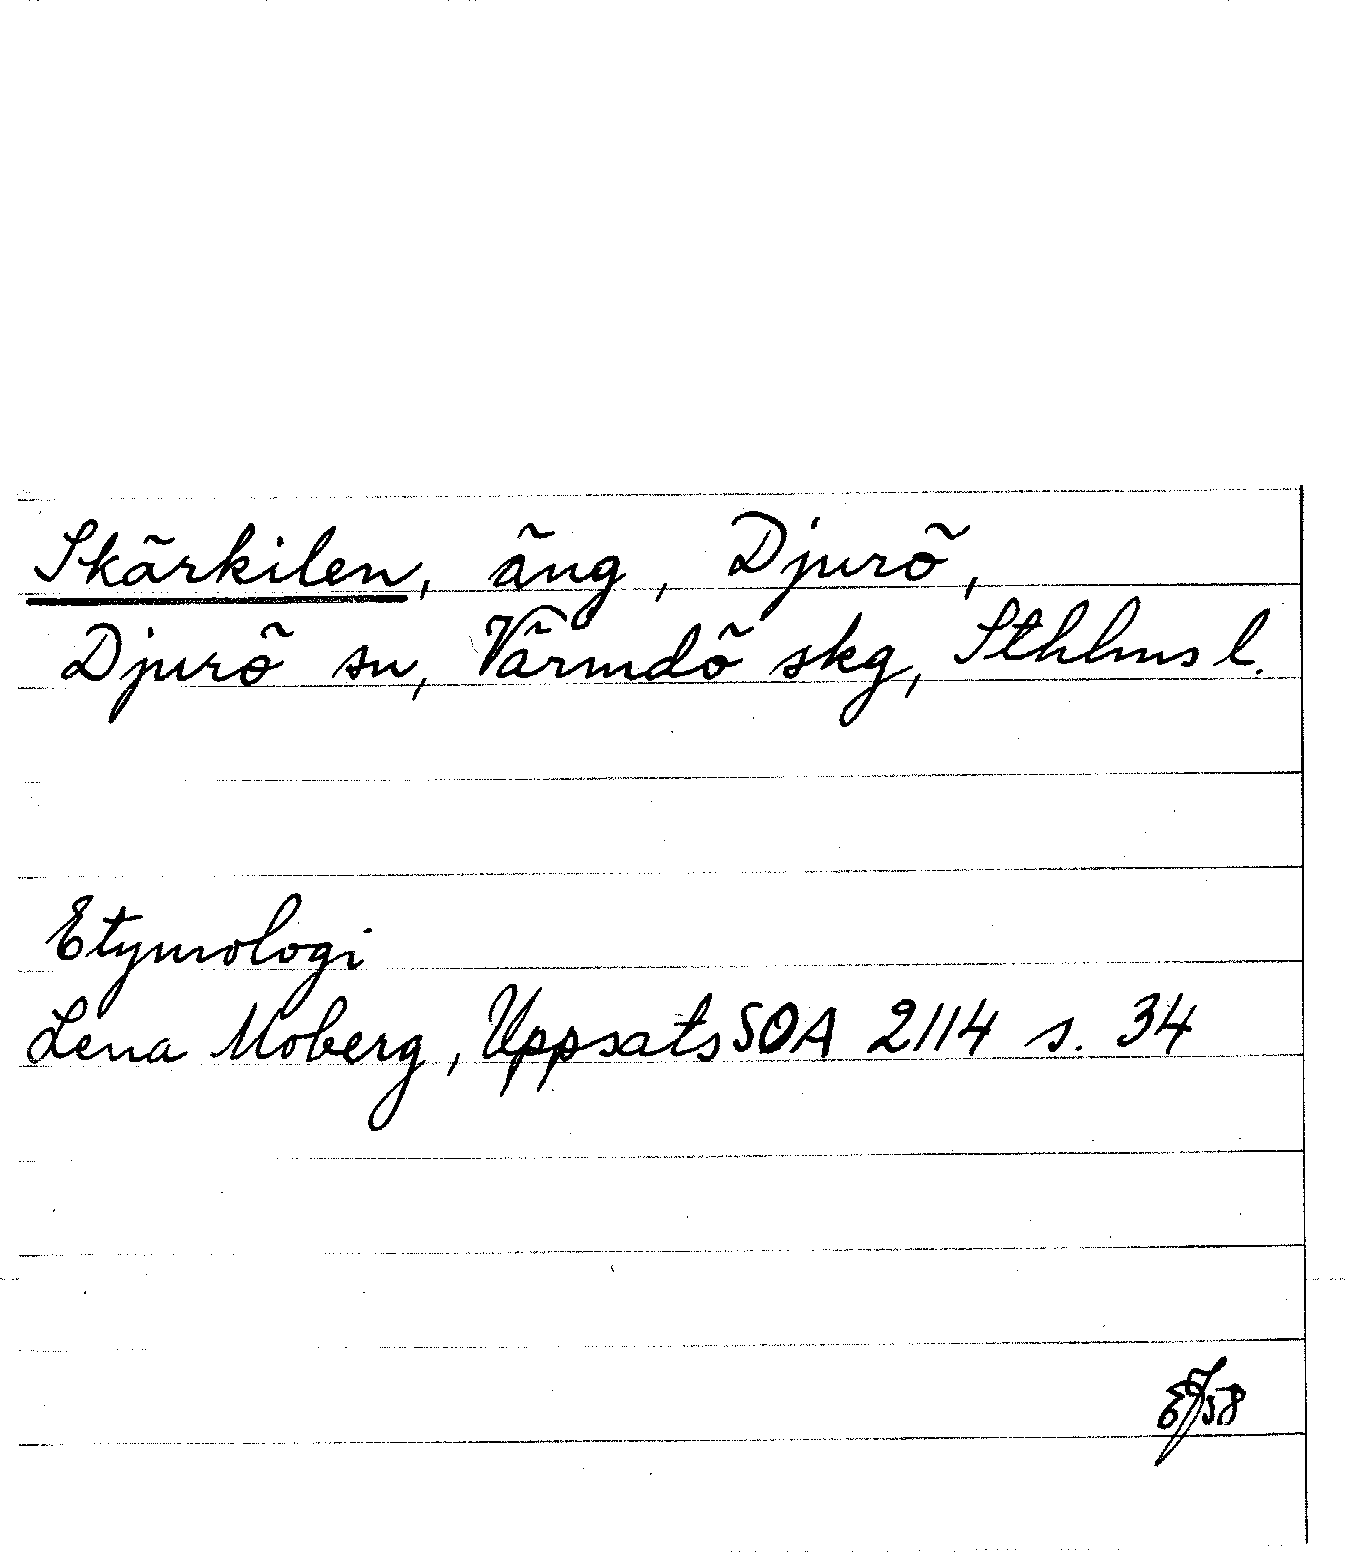 Skärkilen, äng, Djurö,
Djurö sn, Värmdö skg, Sthlms l.
Etymologi
Lena Moberg, Uppsats SOA 2114 s. 34